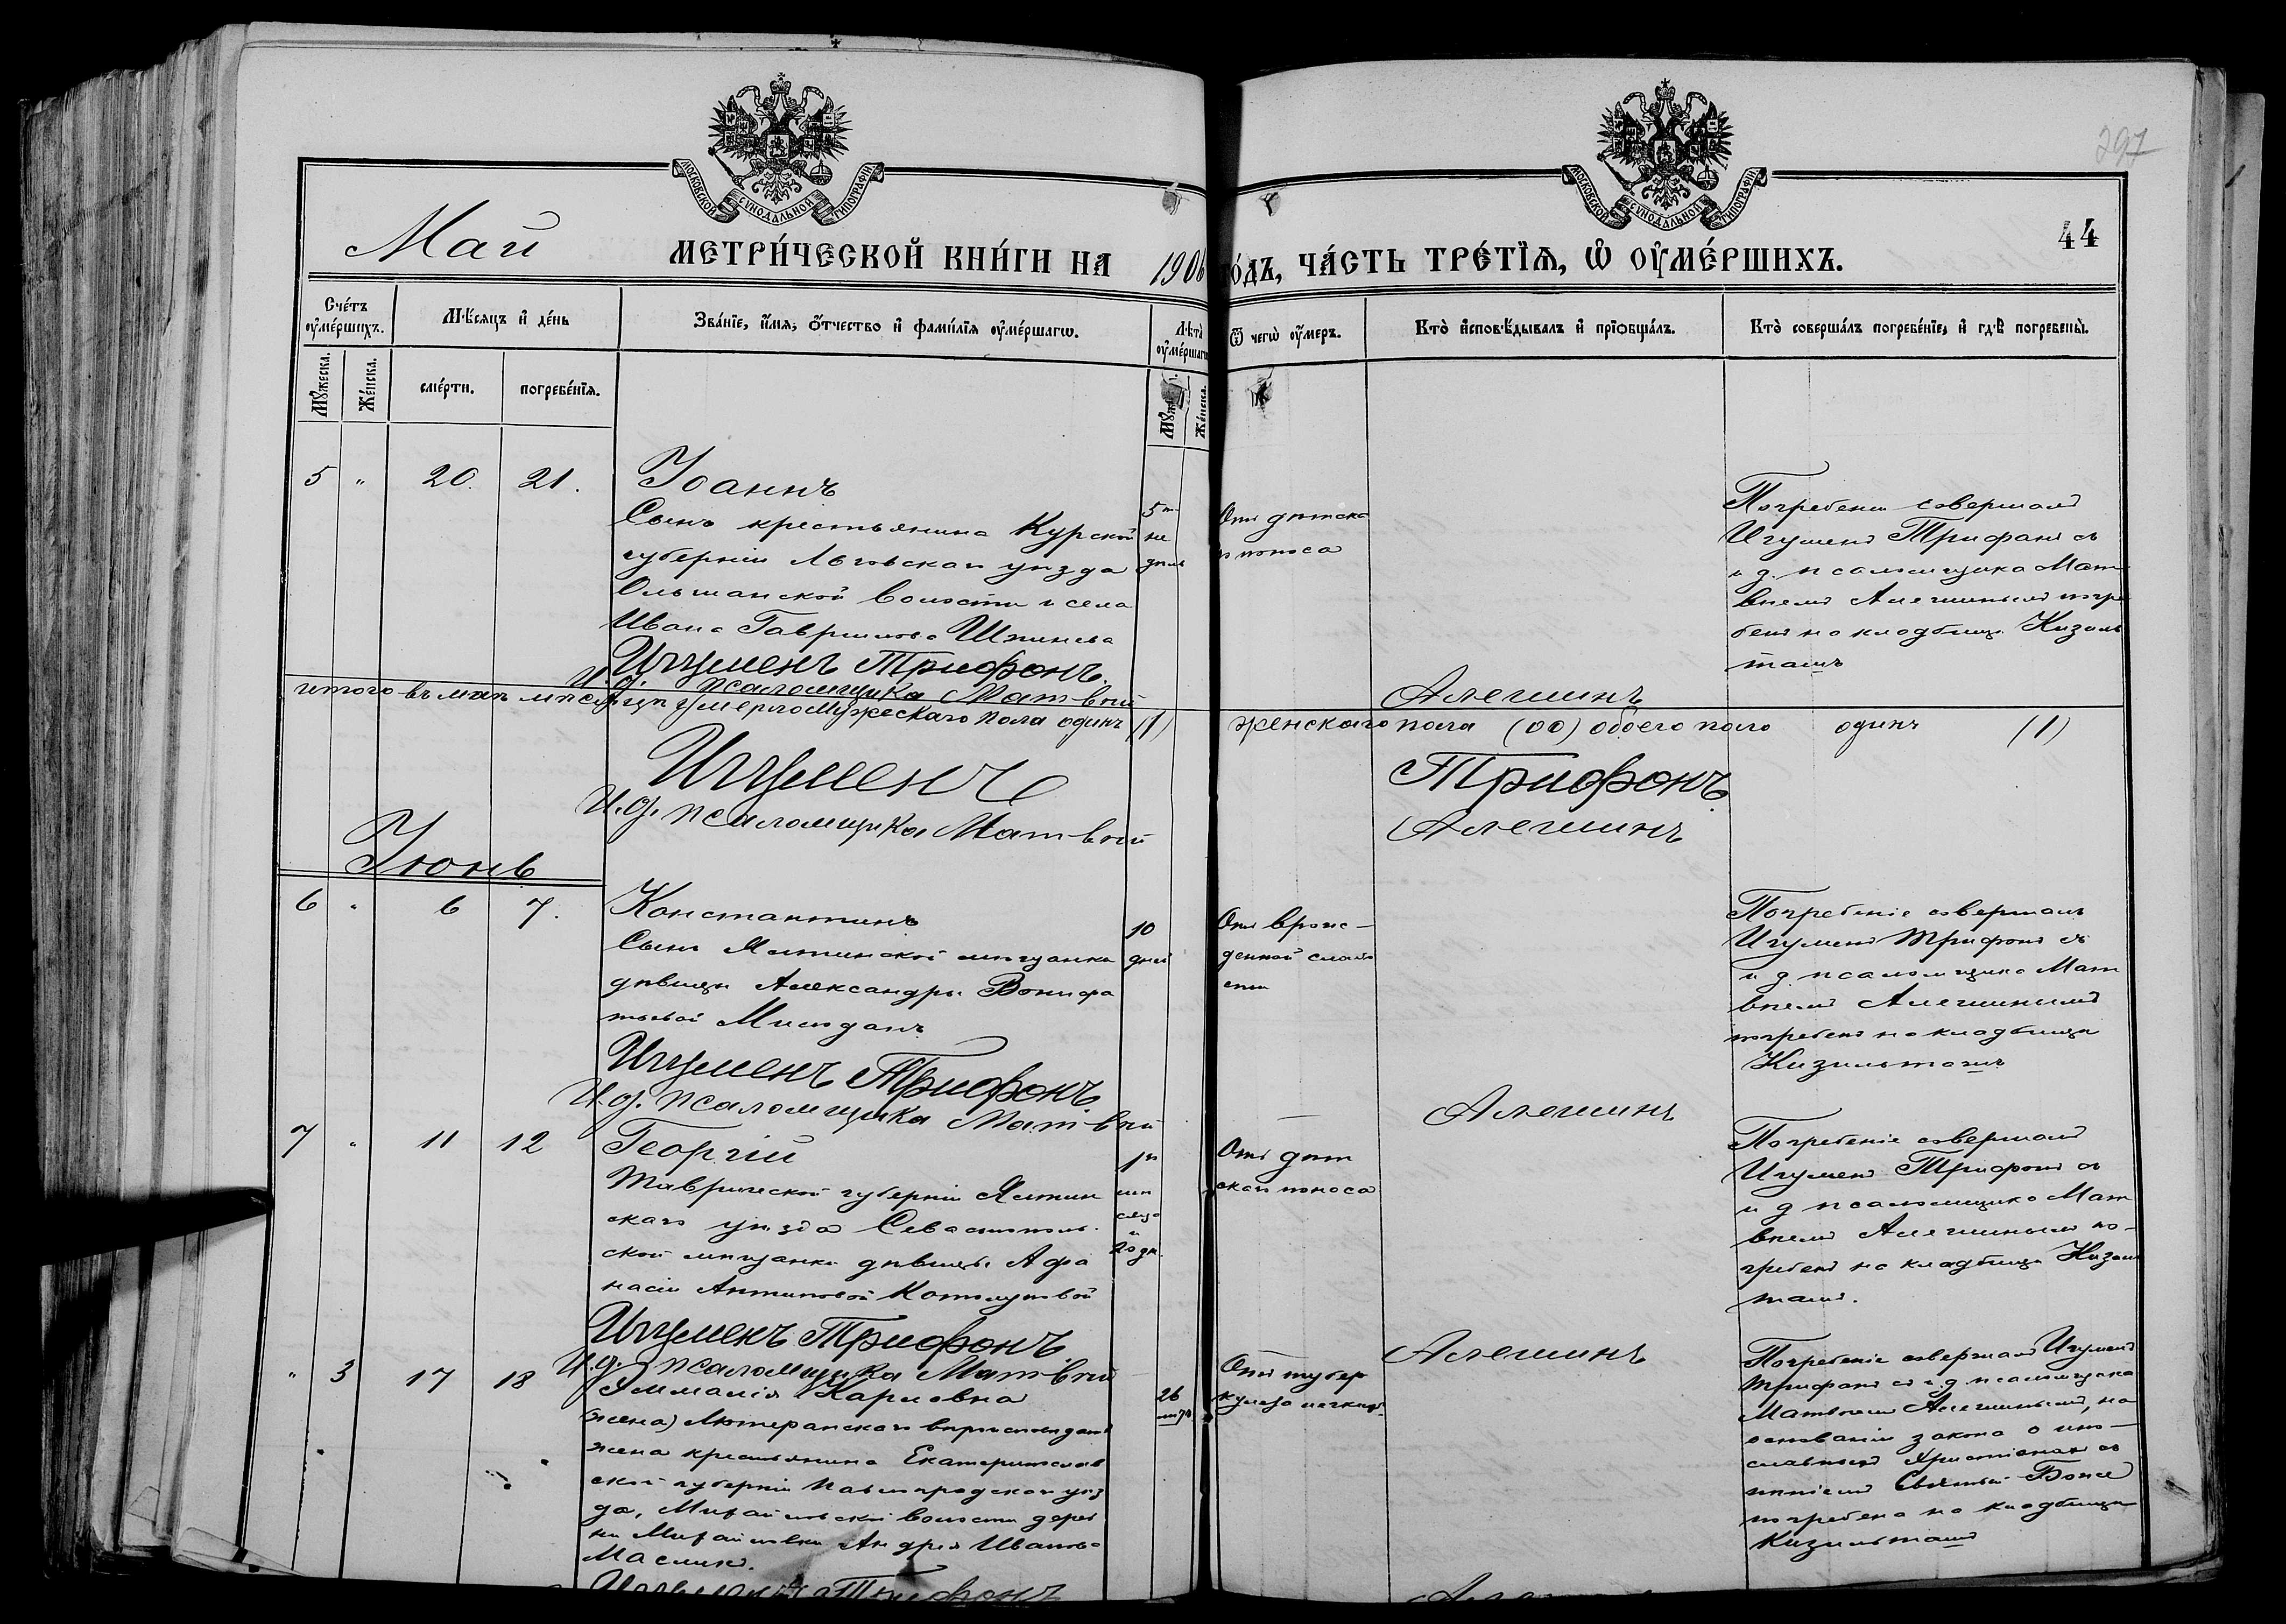 297
44
МОСКОВСКОЙ СѴНОДАЛЬНОЙ ТИПОГРАФІИ
МОСКОВСКОЙ СѴНОДАЛЬНОЙ ТИПОГРАФІИ
Май
МЕТРИ́ЧЕСКОЙ КНИ́ГИ НА 1906 го́дъ, ЧА́СТЬ ТРЕ́ТЇѦ, Ѡ҆ ОУ҆МЕ́РШИХЪ.
Сче́тъ оу҆ме́ршихъ.
Мꙋжеска.
Же́нска.
Мѣ́сяцъ и҆ де́нь
сме́рти.
погребе́нїѧ.
Зва́нїе, и҆́мѧ, ѻ҆́тчество и҆ фами́лїѧ оу҆ме́ршагѡ.
Лѣ́та оу҆ме́ршагѡ
Мꙋж
Же́нска.
Ѿ чегѡ̀ оу҆́меръ.
Кто̀ и҆сповѣ́дывалъ и҆ прїѡбща́лъ.
Кто̀ соверша́лъ погребе́нїе, и҆ гдѣ̀ погребены̀.
5 " 20. 21.
Іоаннъ
Сынъ крестьянина Курской
губерніи Льговскаго уѣзда
Ольшанской волости и села
Ивана Гаврилова
Игуменъ Трифонъ.
И.д. псаломщика Матвѣй Алешинъ
5ти
не
дѣль
Отъ дѣтска
го поноса
Погребеніе совершалъ
Игуменъ Трифонъ съ
и д. псаломщика Мат
вѣемъ Алешинымъ погре
бенъ на кладбищѣ Кизиль
ташъ
итого въ маѣ мѣсяцѣ умерло Мужескаго пола одинъ (1) женскаго пола (00) обоего пола одинъ (1)
Игуменъ Трифонъ
И.д. псаломщика Матвѣй Алешинъ
Іюнь
6 " 6 7.
Константинъ
Сынъ Ялтинской мѣщанки
дѣвицы Александры Вонифа
тьевой
Игуменъ Трифонъ
И.д. псаломщика Матвѣй Алешинъ
10
дней
Отъ врож-
денной слабо
сти
Погребеніе совершалъ
Игуменъ Трифонъ съ
и д. псаломщика Мат
вѣемъ Алешинымъ
погребенъ на кладбищѣ
Кизильташъ
7 " 11 12
Георгій
Таврической губерніи Ялтин
скаго уѣзда Севастополь-
ской мѣщанки дѣвицы Афа
насіи Антиповой
Игуменъ Трифонъ
И.д. псаломщика Матвѣй Алешинъ
1го
мѣ
сяца
и
20 дн.
Отъ дѣт
скаго поноса
Погребеніе совершалъ
Игуменъ Трифонъ съ
и д псаломщика Мат
вѣемъ Алешинымъ по-
гребенъ на кладбищѣ Кизиль
ташъ.
" 3 17 18
Карловна
(жена) Лютеранскаго вѣроисповѣданія
жена крестьянина Екатеринослав
ской губерніи Павлоградскаго уѣз
да, Михайловской волости дерев
ни Михайловки Андрея Иванова
Маслика.
Игуменъ Трифонъ
26
лѣтъ
Отъ тубер
кулеза легкихъ
Погребеніе совершалъ Игуменъ
Трифонъ съ и.д. псаломщика
Матвѣемъ Алешинымъ, на
основаніи закона о ино-
славныхъ Христіанахъ съ
пѣніемъ Святый Боже
погребена на кладбищѣ
Кизильташъ